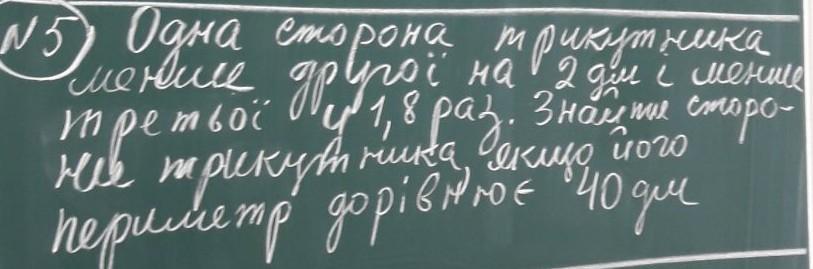 N5) Одна сторона трикутника
менше другої на 2 дм і менше
третьої у 1,8 раз. Знайти сторо-
ни трикутника, якщо його
периметр дорівнює 40 дм